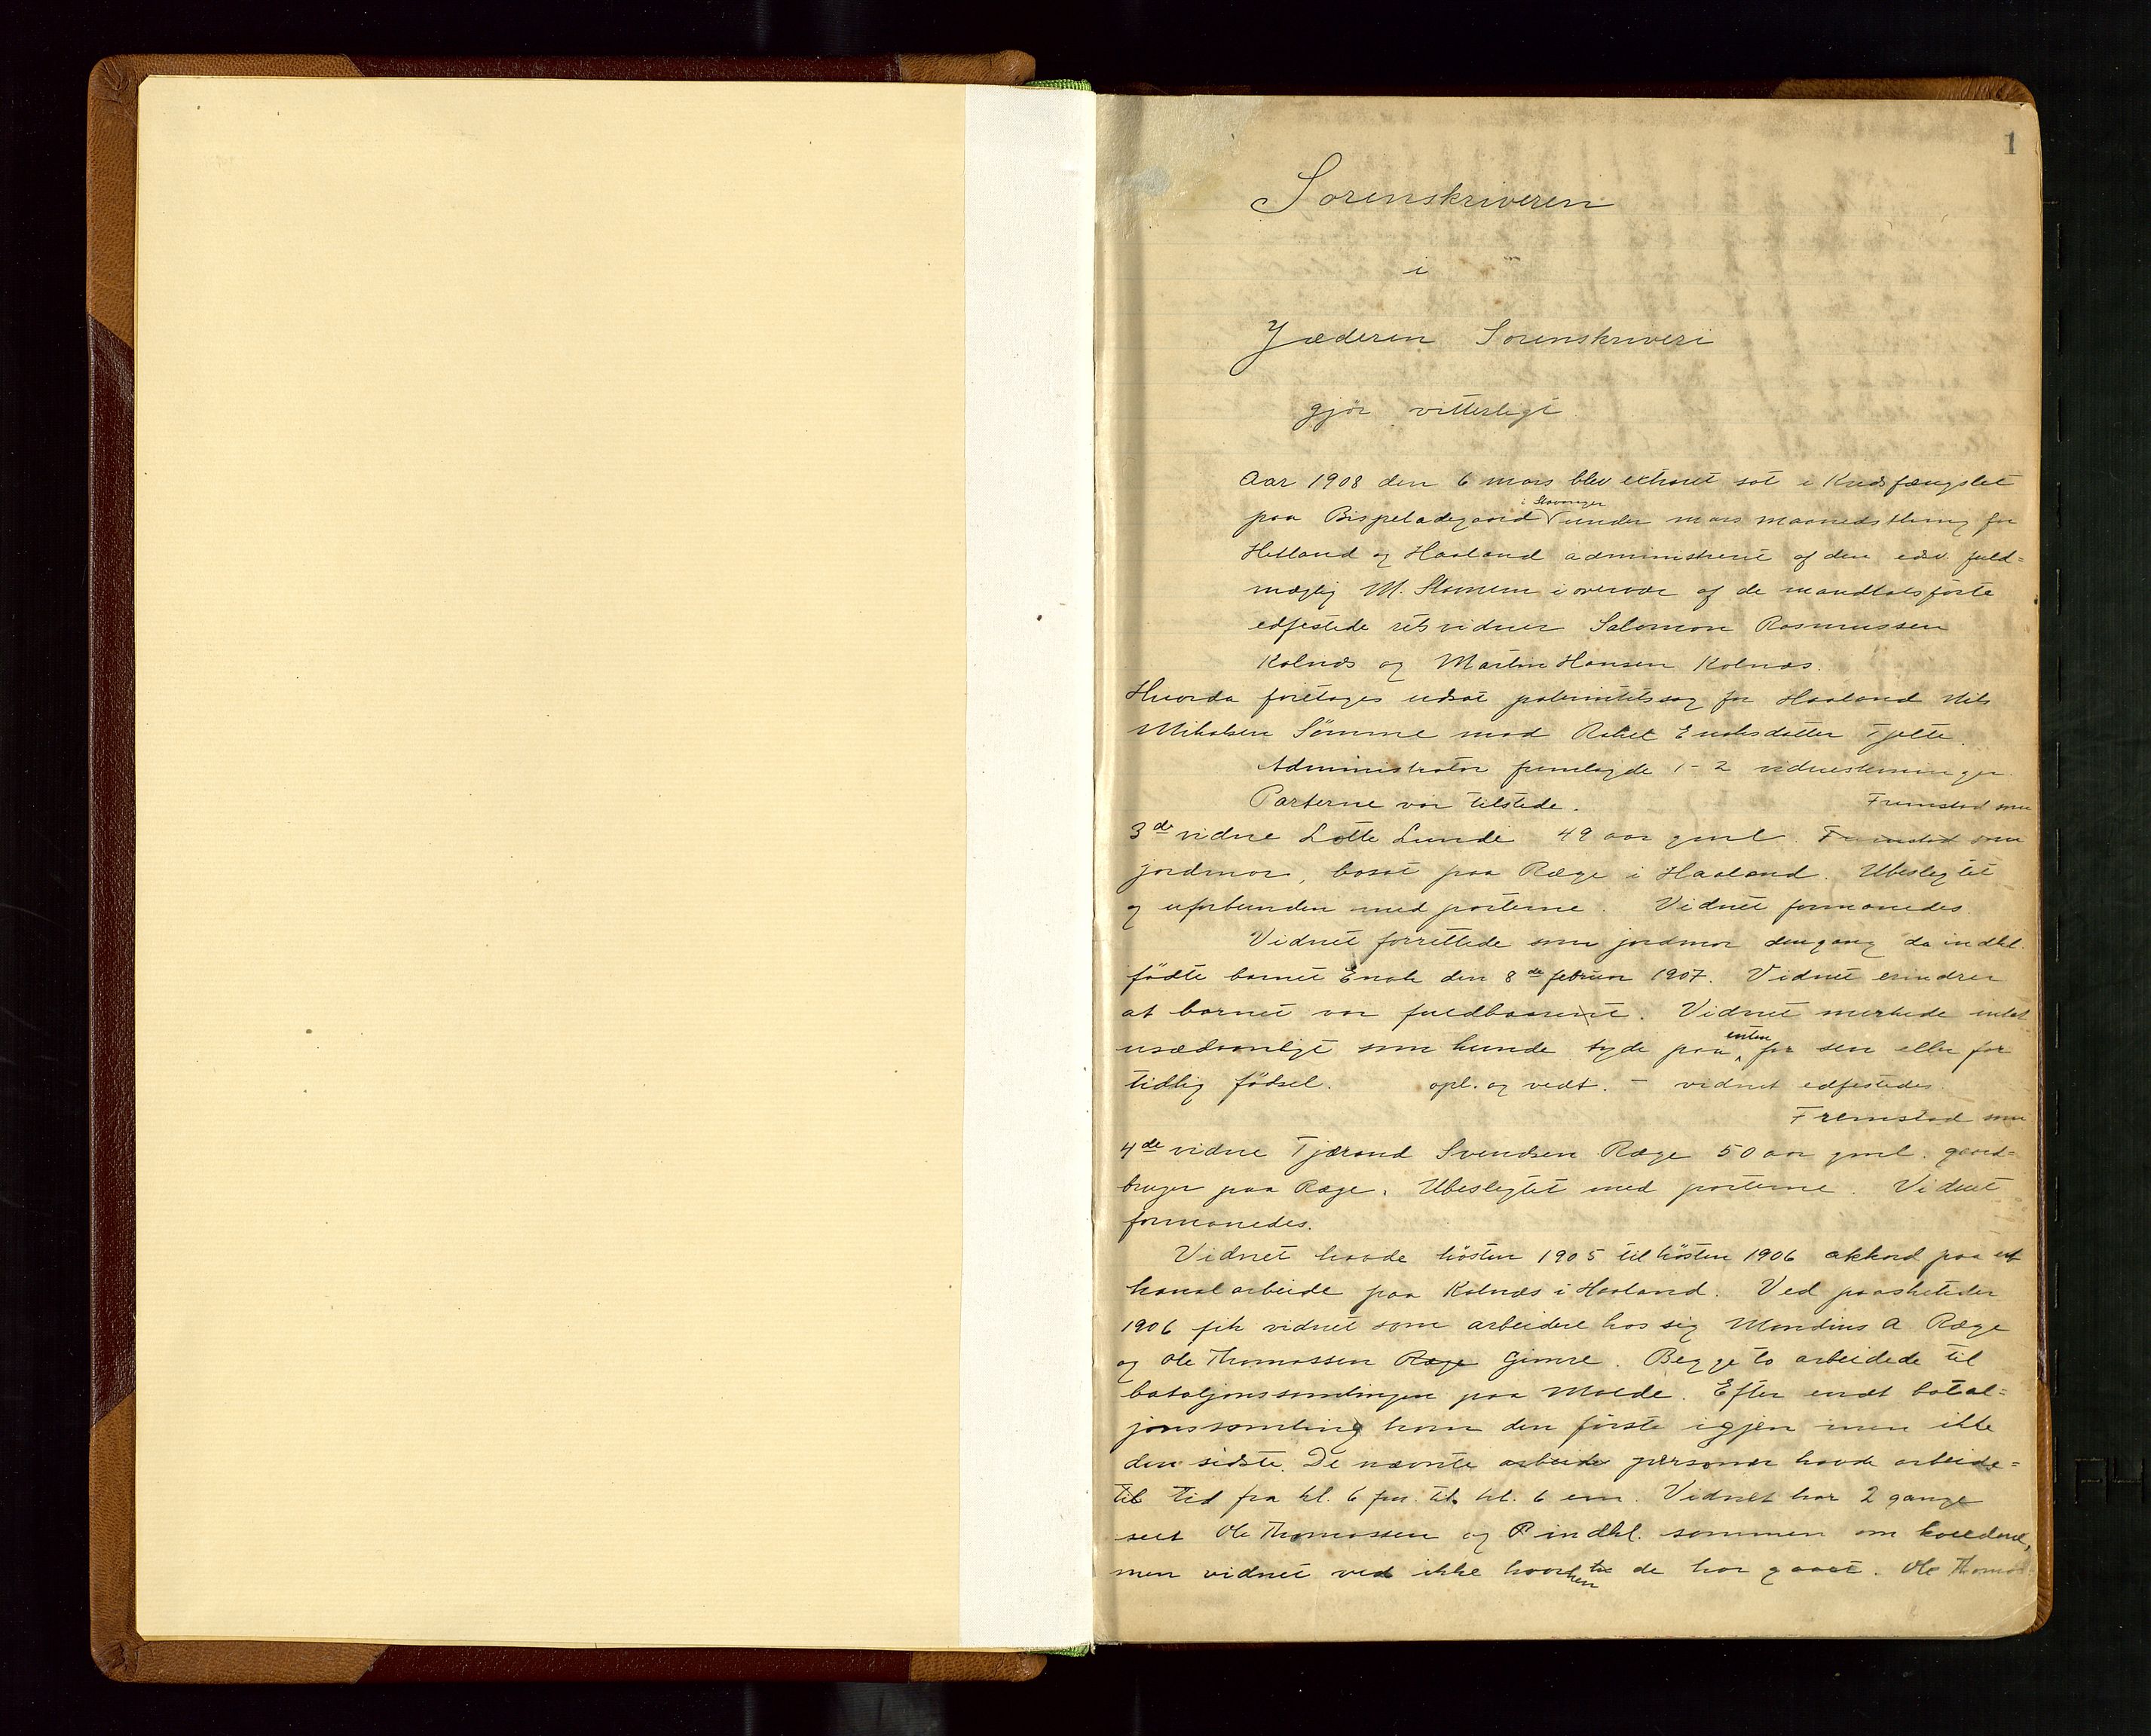 1
Sorenskriveren
i
Jæderen Sorenskriveri
gjør vitterligt
Aar 1908 den 6 mars blev extraret sat i Kredsfængslet
paa Bispeladegaard i Stavanger under mars maanedsthing for
Hetland og Haaland administreret af den edsv. fuld-
mægtig M. i overvær af de mandtalsførte
edfestede retsvidner Salomon Rasmussen
Kolnæs og Martin Hansen Kolnæs.
Hvorda foretoges udsat paternitetssag for Haaland Nils
Mikalsen Sömme mod Rakel Enoksdatter Tjelte.
Administrator fremlagde 1-2 vidnestevninger.
Parterne var tilstede. Fremstod som
3de vidne Lotte Lunde 49 aar gml. Fremstod som
jordmor, bosat paa Ræge i Haaland. Ubeslegtet
og uforbunden med parterne. Vidnet formanedes.
Vidnet forrettede som jordmor dengang da indkl.
födte barnet Enok den 8de februar 1907. Vidnet erindrer
at barnet var fuldbaarent. Vidnet merkede intet
usædvanligt som kunde tyde paa enten for sen eller for
tidlig födsel. opl. og vedt. - vidnet edfestedes
Fremstod som
4de vidne Tjærand Svendsen Ræge 50 aar gml. gaard-
bruger paa Ræge. Ubeslegtet med parterne. Vidnet
formanedes.
Vidnet havde hösten 1905 til hösten 1906 akkord paa et
kanalarbeide paa Kolnæs i Haaland. Ved paasketider
1906 fik vidnet som arbeidere hos sig Mandius A Ræge
og Ole Thomassen Ræge Gimre. Begge to arbeidede til
bataljonssamlingen paa Molde. Efter endt batal-
jonssamling kom den förste igjen men ikke
den sidste. De nævnte arbeide personer havde arbeids-
til tid fra kl. 6 fm. til kl. 6 em. Vidnet har 2 gange
seet Ole Thomassen og R indkl. sammen om kveldene,
men vidnet ved ikke hvorhen de har gaaet. Ole Thomas-